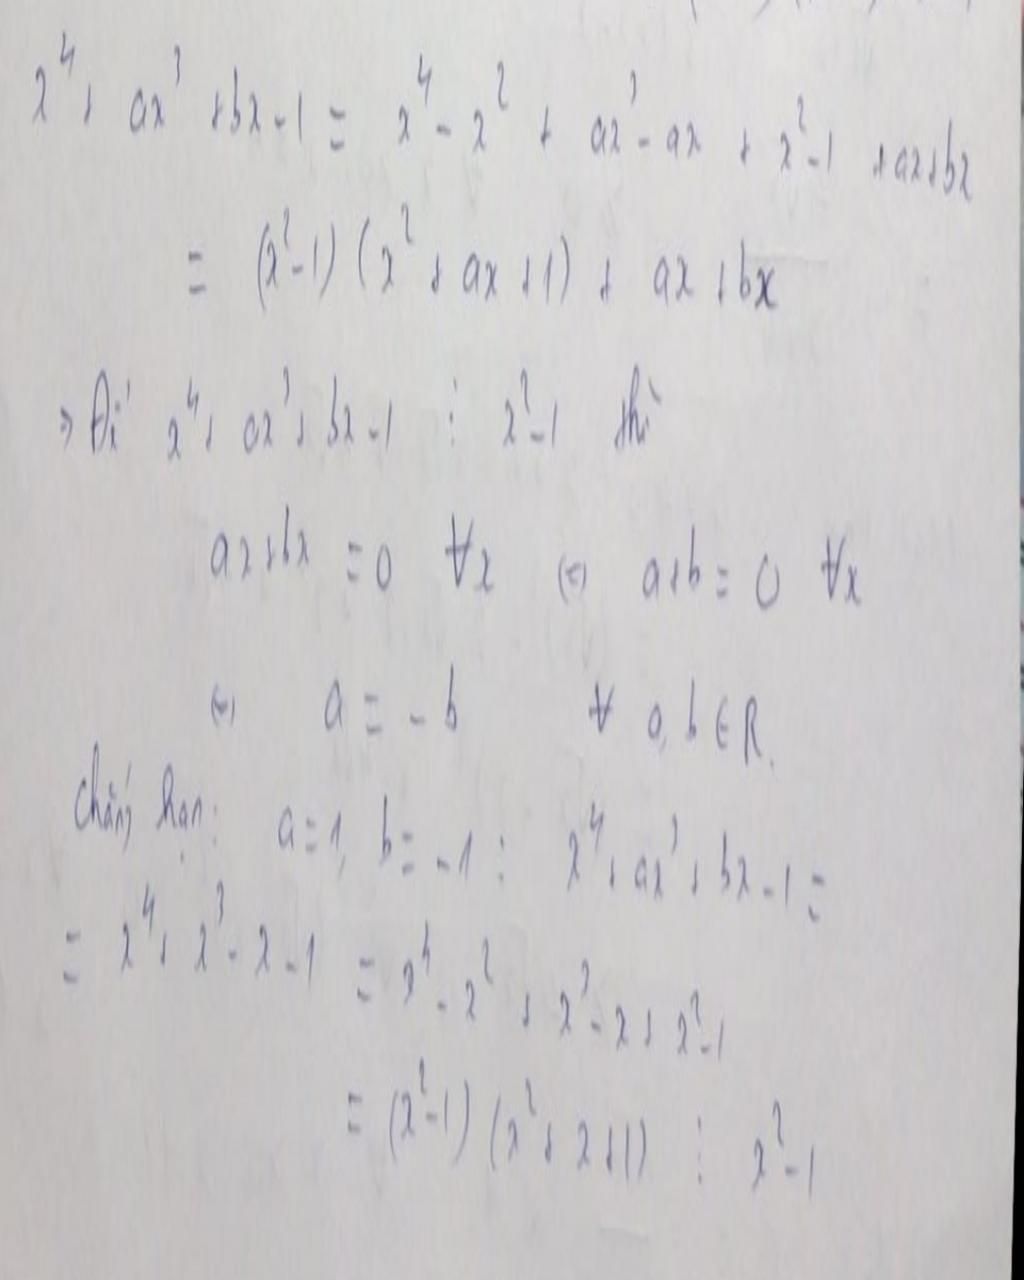 x⁴ + ax³ + bx - 1 = x⁴ - x² + ax³ - ax + x² - 1 + ax + bx
= (x² - 1) (x² + ax + 1) + ax + bx
⇒ Để x⁴ + ax³ + bx - 1 ⋮ x² - 1 thì
ax + bx = 0 ∀x ⇔ a + b = 0 ∀x
⇔ a = - b ∀ a, b ∈ R.
Chẳng hạn: a = 1, b = -1 : x⁴ + ax³ + bx - 1 =
= x⁴ + x³ - x - 1 = x⁴ - x² + x³ - x + x² - 1
= (x² - 1) (x² + x + 1) ⋮ x² - 1